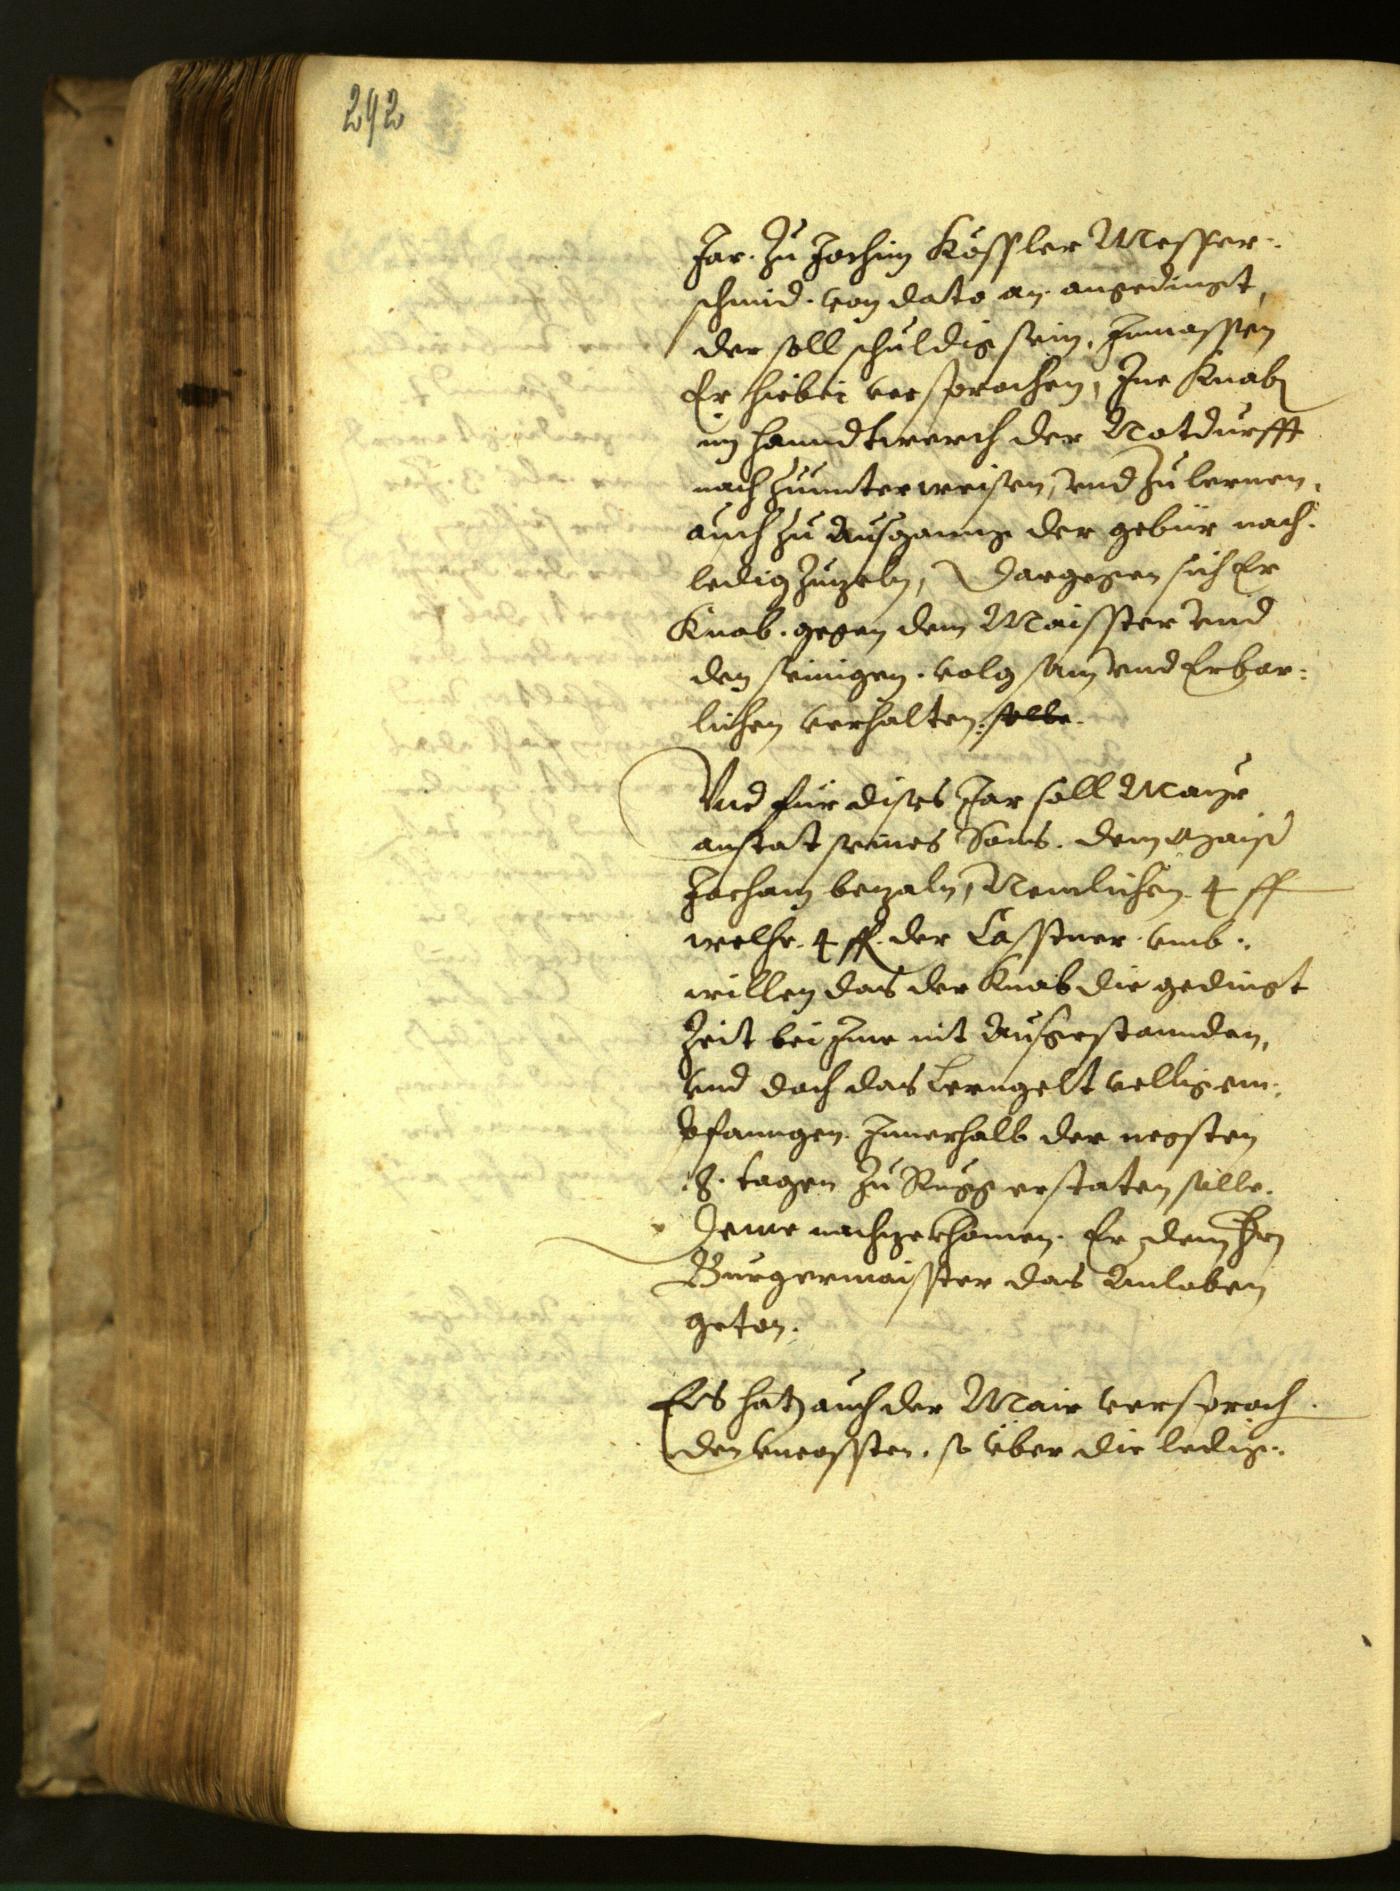 292
Jar. Zu Jochim Kössler Messer-
schmid. von dato an. angedingt,
der soll schuldig sein, Inmassen
Er hiebei versprochen, Ine Knab
im hanndtwerch der Notdurfft
nach zuunterweisen, vnd zu lernen,
auch zu Ausganng der gebür nach.
ledig zuzeln, Dargegen sich Er
Knab. gegen dem Maisster vnd
den seinigen. volgsam vnd Erbar-
lichen verhalten. solle.
Vnd für dises Jar soll Mayr
anstat seines Sons. dem Maist
Jocham bezaln, Nemlichen. 4 ff
welche. 4 ff. der Casstner. vmb.
willen das der Knab die gedingt
Zeit bei Ime nit Ausgestannden,
vnd doch das Lerngelt vellig em-
pfanngen. Innerhalb der negsten
.8. tagen zu Rugg erstaten sölle.
Deme nachzekhomen. Er dem Hrn
Burgermaisster das Anloben
geton.
Es hat auch der Mair versproch.
den vncossten. so über die ledig-